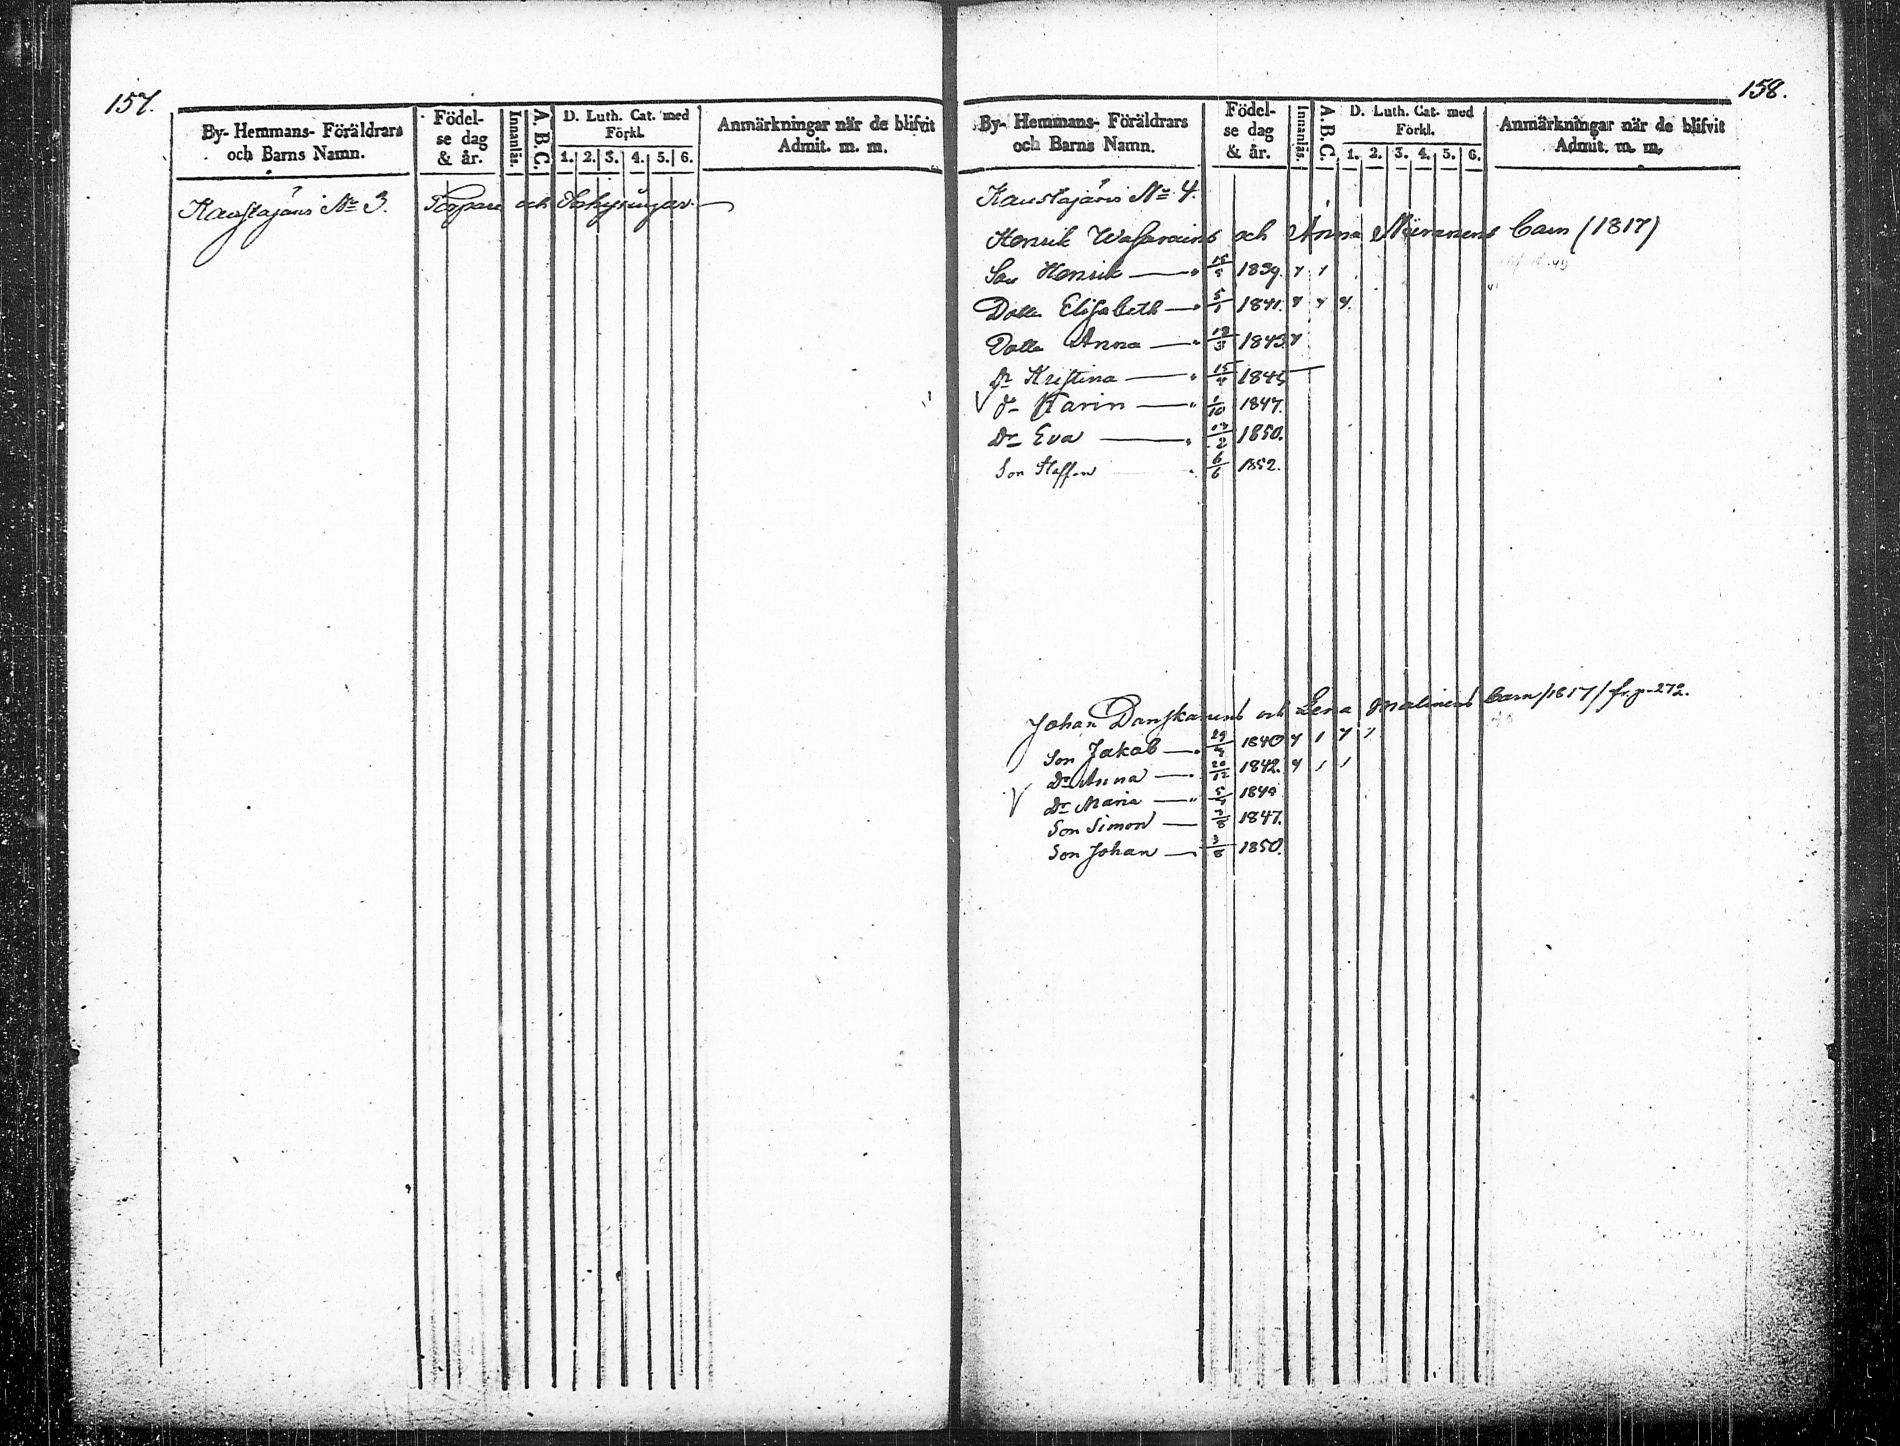 157.
By- Hemmans- Föräldrars och Barns Namn.
Födel-se dag & år.
Innanläs.
A. B. C.
D. Luth. Cat. med Förkl.
1. 2. 3. 4. 5. 6.
Anmärkningar när de blifvit Admit. m. m.
No 3. Torpare och
158.
By- Hemmans- Föräldrars och Barns Namn.
Födel-se dag & år.
Innanläs.
A. B. C.
D. Luth. Cat. med Förkl.
1. 2. 3. 4. 5. 6.
Anmärkningar när de blifvit Admit. m. m.
No 4.
Henrik och Anna barn (1817)
Son Henrik 1839.
Dottr Elisabeth 1841.
Dottr Anna 1843
Dr Kristina 1845
Dr Karin 1/10 1847.
Dr Eva 1850.
Son Staffan 6/6 1852.
Johan Danskanens och Lena Malinens barn /1817/ fr. p. 272.
Son Jakob 1840
Dr Anna 20/12 1842.
Dr Maria
Son Simon 1847.
Son Johan 3/8 1850.